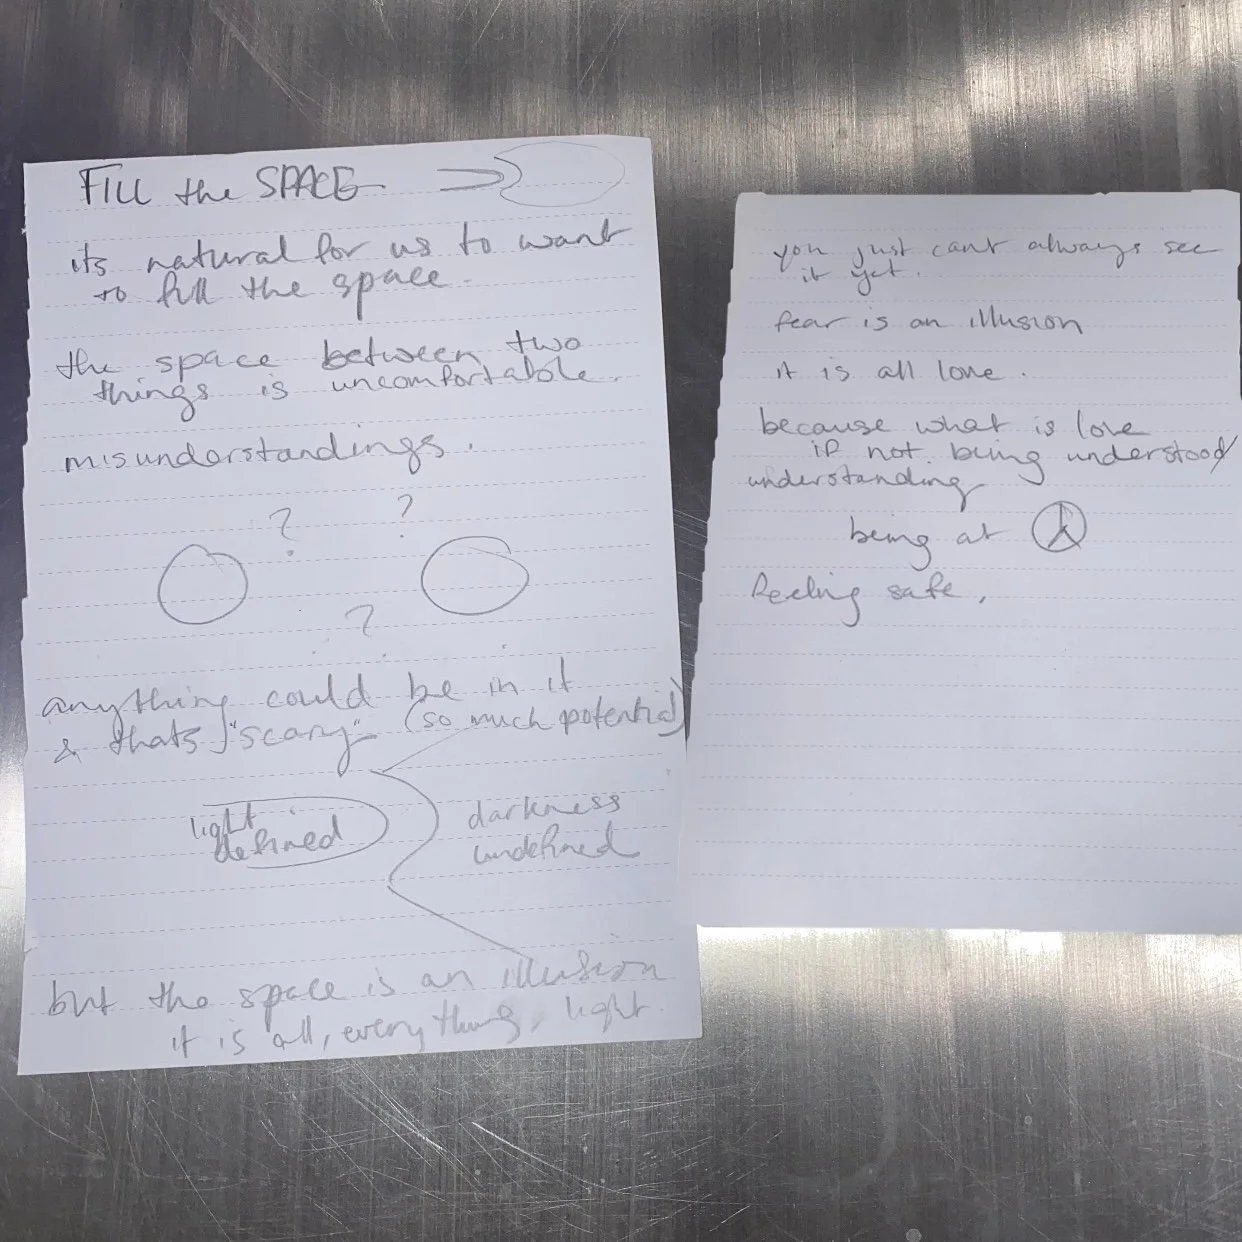 FILL the SPACE
its natural for us to want
to fill the space.
the space between two
things is uncomfortable.
misunderstandings.
? ?
?
anything could be in it
& thats "scary" (so much potential)
light
defined
darkness
undefined
but the space is an illusion
it is all, everything, light.
you just cant always see
it yet.
fear is an illusion
it is all love.
because what is love
if not being understood/
understanding
being at
feeling safe.